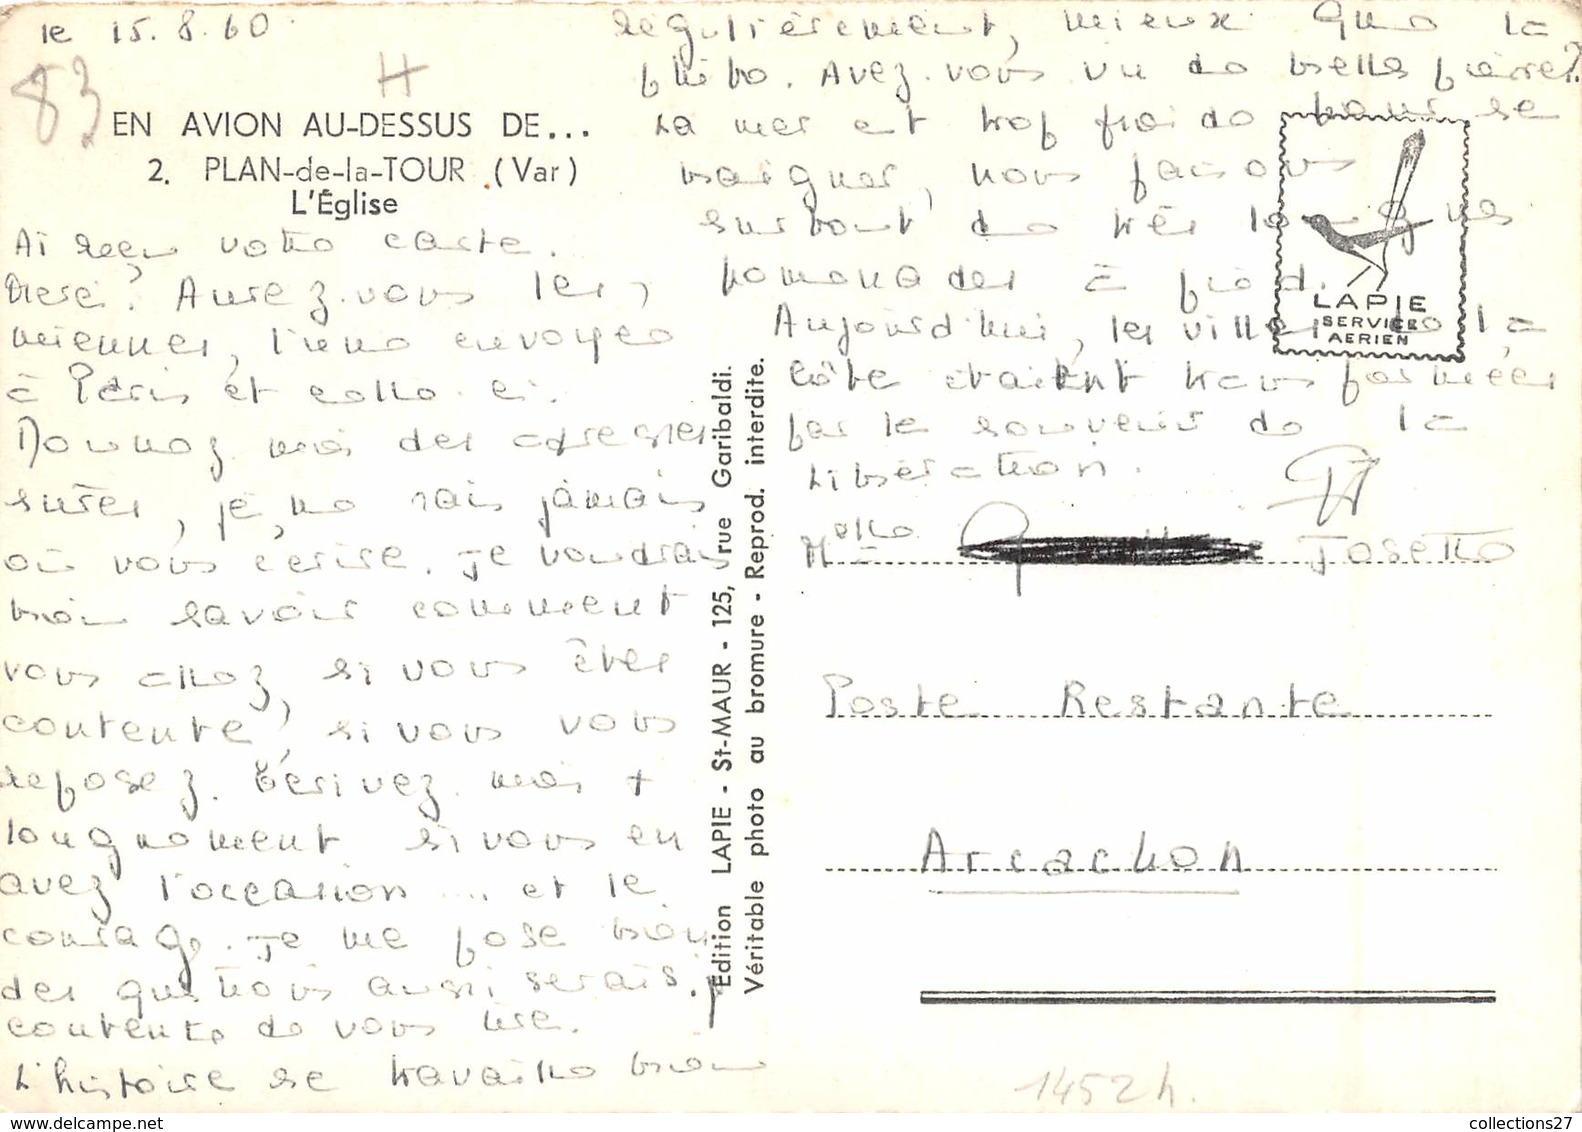 le 15.8.60
83
H
EN AVION AU-DESSUS DE...
2. PLAN-de-la-TOUR (Var)
L'Église
Ai reçu votre carte.
Merci. Aurez-vous les
miennes, l'une envoyée
à Paris et celle-ci.
Donnez-moi des adresses
sûres, je ne sais jamais
où vous écrire. Je voudrais
bien savoir comment
vous allez, si vous êtes
contente, si vous vous
reposez. Écrivez-moi +
longuement si vous en
avez l'occasion ... et le
courage. Je me pose bien
des questions aussi serais-je
contente de vous lire.
L'histoire se travaille bien
régulièrement, mieux que la
philo. Avez-vous vu de belles pierres?
La mer est trop froide pour se
baigner, nous faisons
surtout de très longues
promenades à pied.
Aujourd'hui, les villes de la
Côte étaient transformées
par le souvenir de la
Libération.
LAPIE
SERVICE
AERIEN
Melle Josette
Poste Restante
Arcachon
Edition LAPIE - St-MAUR - 125, rue Garibaldi.
Véritable photo au bromure - Reprod. interdite.
1452 h.
collections27